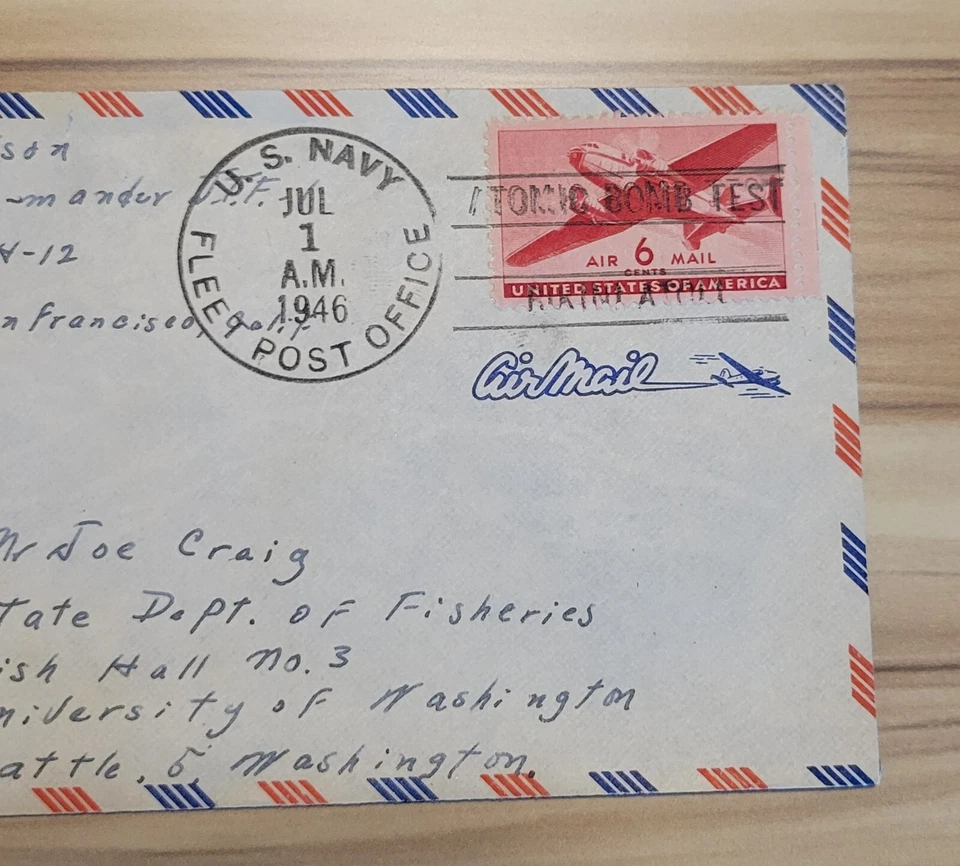 son
mander J.T.F. 1
A-12
n Francisco, Calif
U. S. NAVY
JUL
1
A.M.
1946
FLEET POST OFFICE
ATOMIC BOMB TEST
BIKINI ATOLL
AIR 6 MAIL
CENTS
UNITED STATES OF AMERICA
Air Mail
Mr Joe Craig
tate Dept. of Fisheries
ish Hall No. 3
niversity of Washington
attle, 5, Washington.